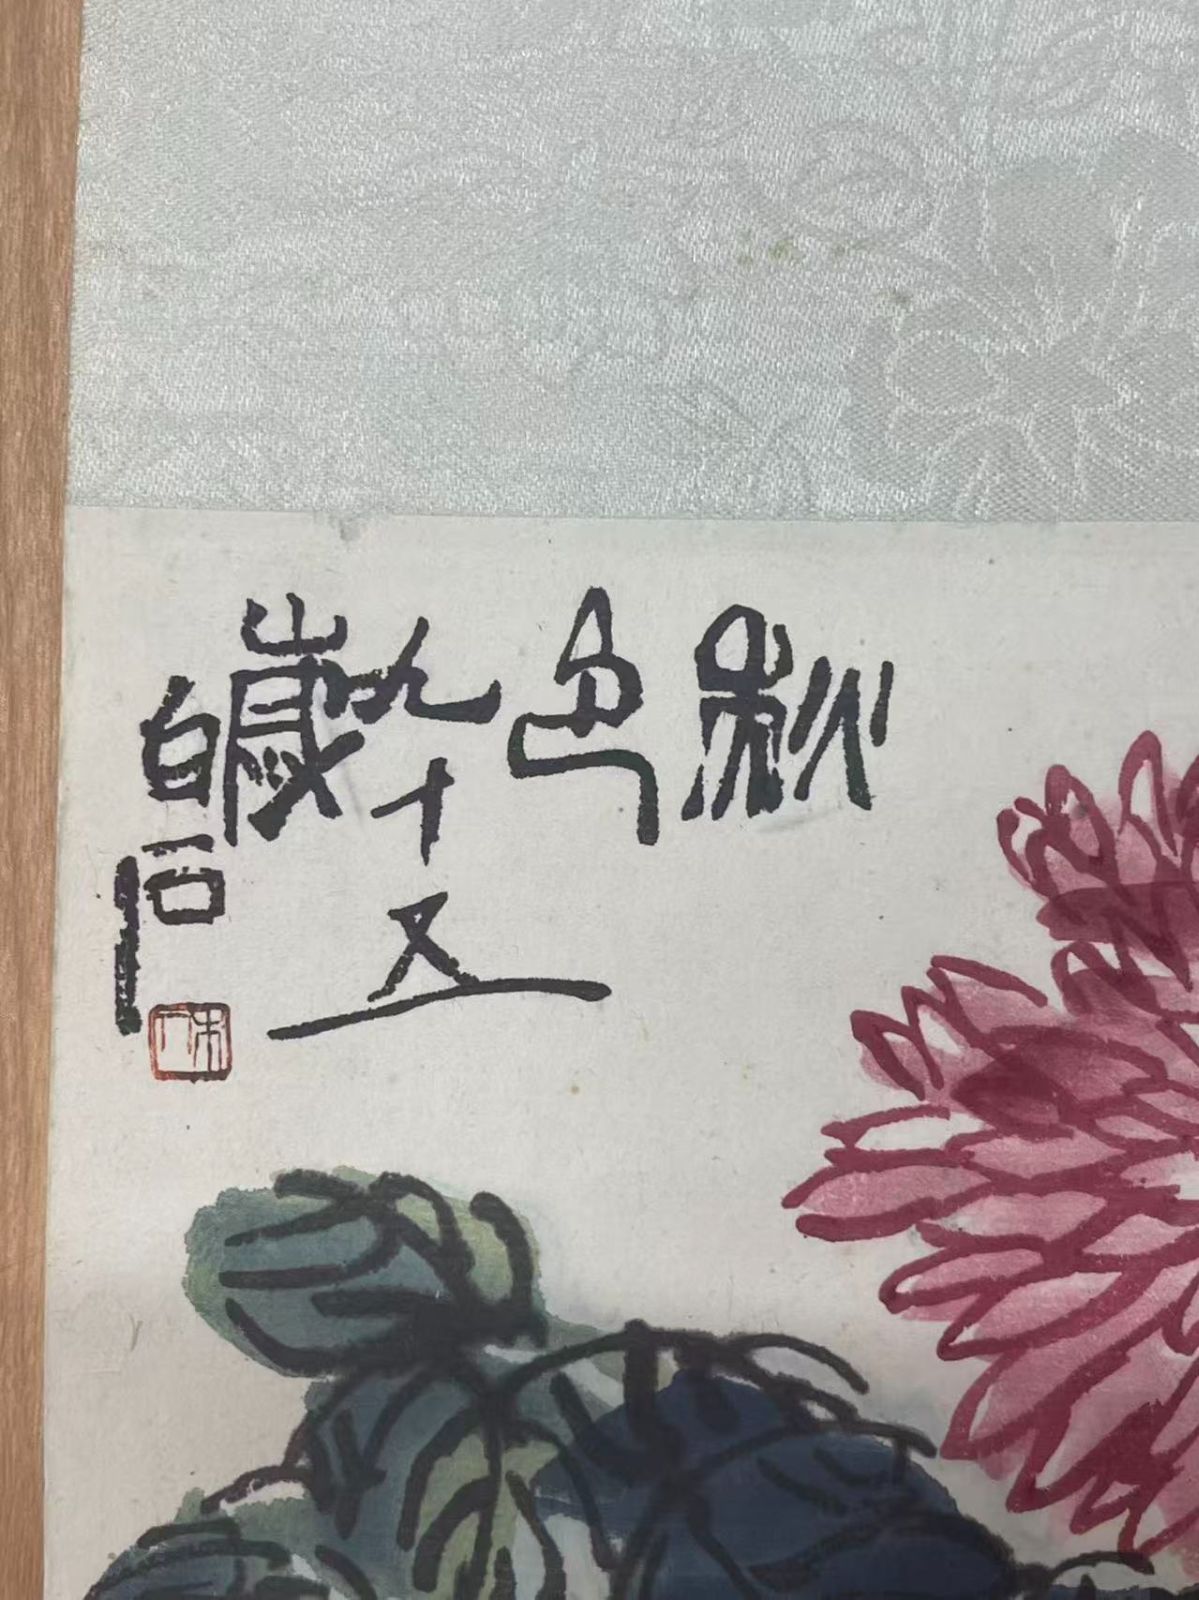 秋色
九十五
歲
白石
木人